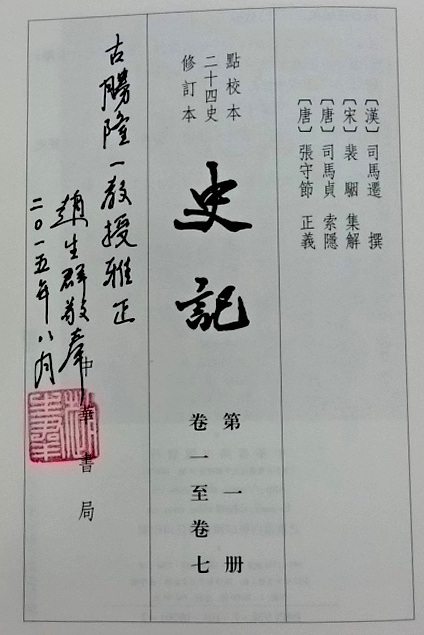 〔漢〕司馬遷 撰
〔宋〕裴駰 集解
〔唐〕司馬貞 索隱
〔唐〕張守節 正義
點校本
二十四史
修訂本
史記
第一册
卷一至卷七
古勝隆一教授雅正
趙生群敬奉
二〇一五年八月
中華書局